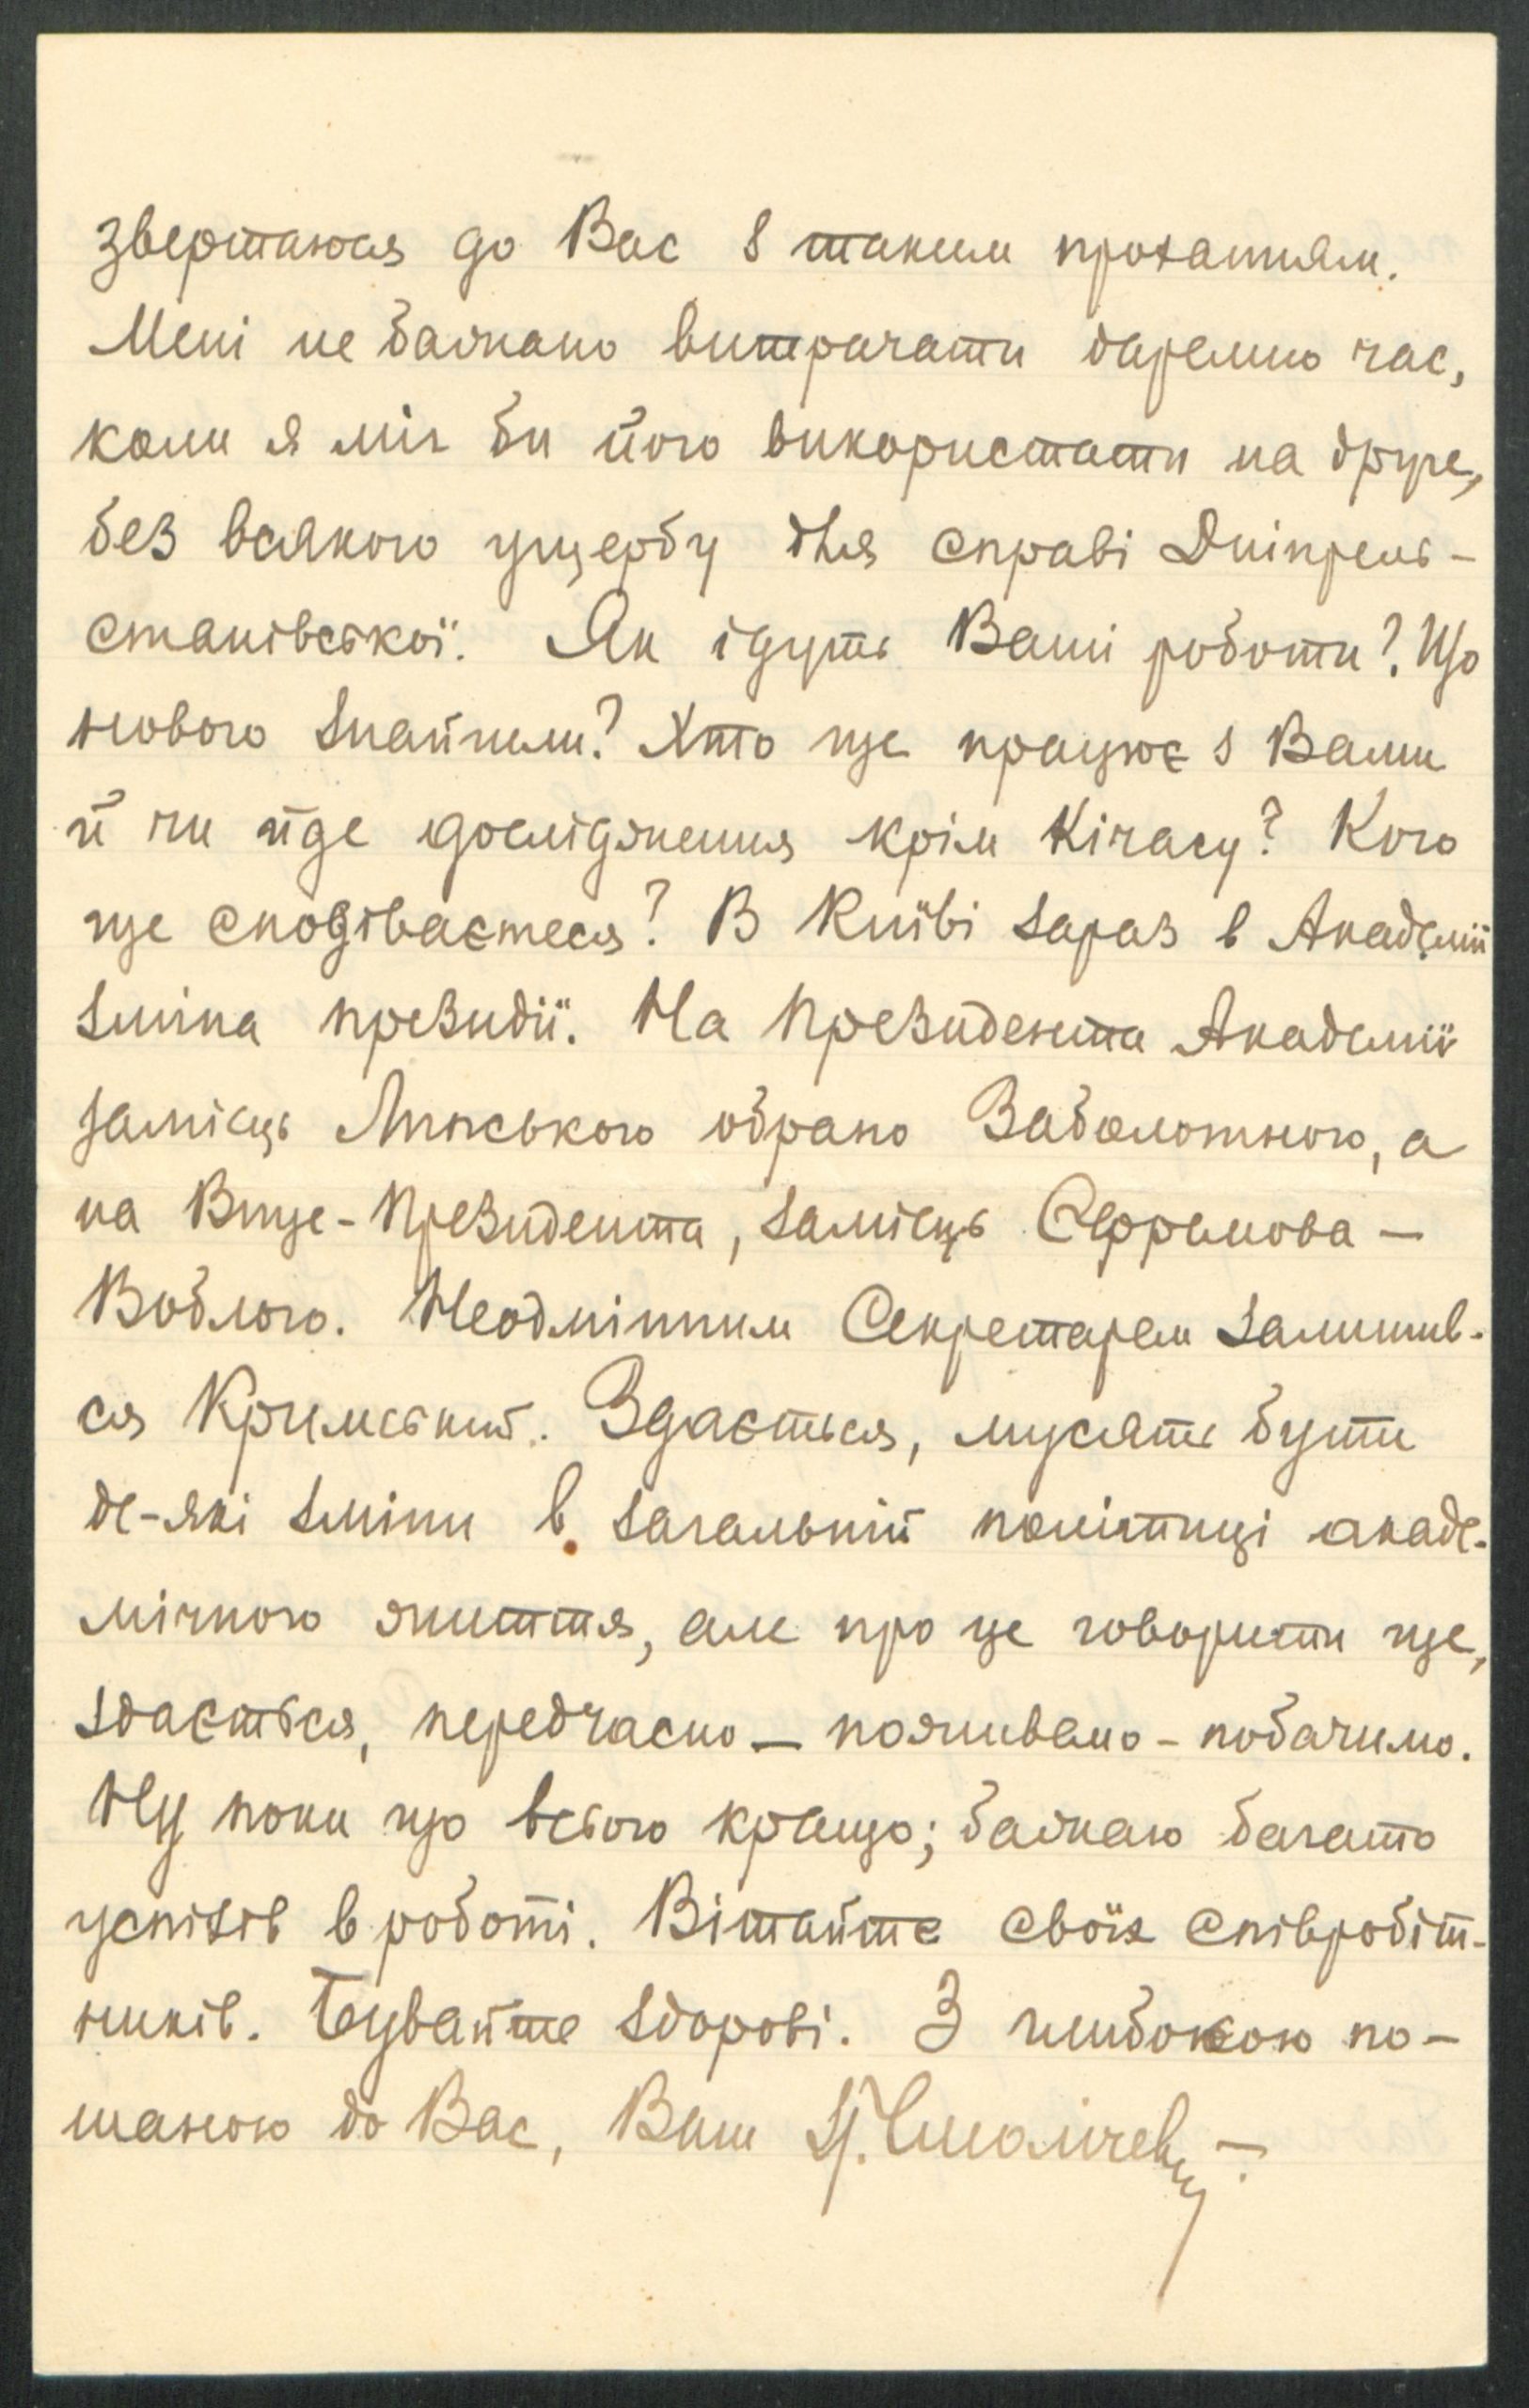 звертаюся до Вас з таким проханням.
Мені не бажано витрачати даремно час,
коли я міг би його використати на друге,
без всякого ущербу для справі Дніпрель-
станівської. Як ідуть Ваші роботи? Що
нового знайшли? Хто ще працює з Вами
й чи йде дослідження крім Кічасу? Кого
ще сподіваєтеся? В Київі зараз в Академії
зміна президії. На Президента Академії
замісць Липського обрано Заболотного, а
на Вице-Президента, замісць Єфремова –
Воблого. Неодмінним Секретарем залишив-
ся Кримський. Здається, мусять бути
де-які зміни в загальній політиці акаде-
мічного життя, але про це говорити ще,
здається, передчасно – поживемо – побачимо.
Ну поки що всього кращо; бажаю багато
успіхів в роботі. Вітайте своїх співробіт-
ників. Бувайте здорові. З глибокою по-
шаною до Вас, Ваш